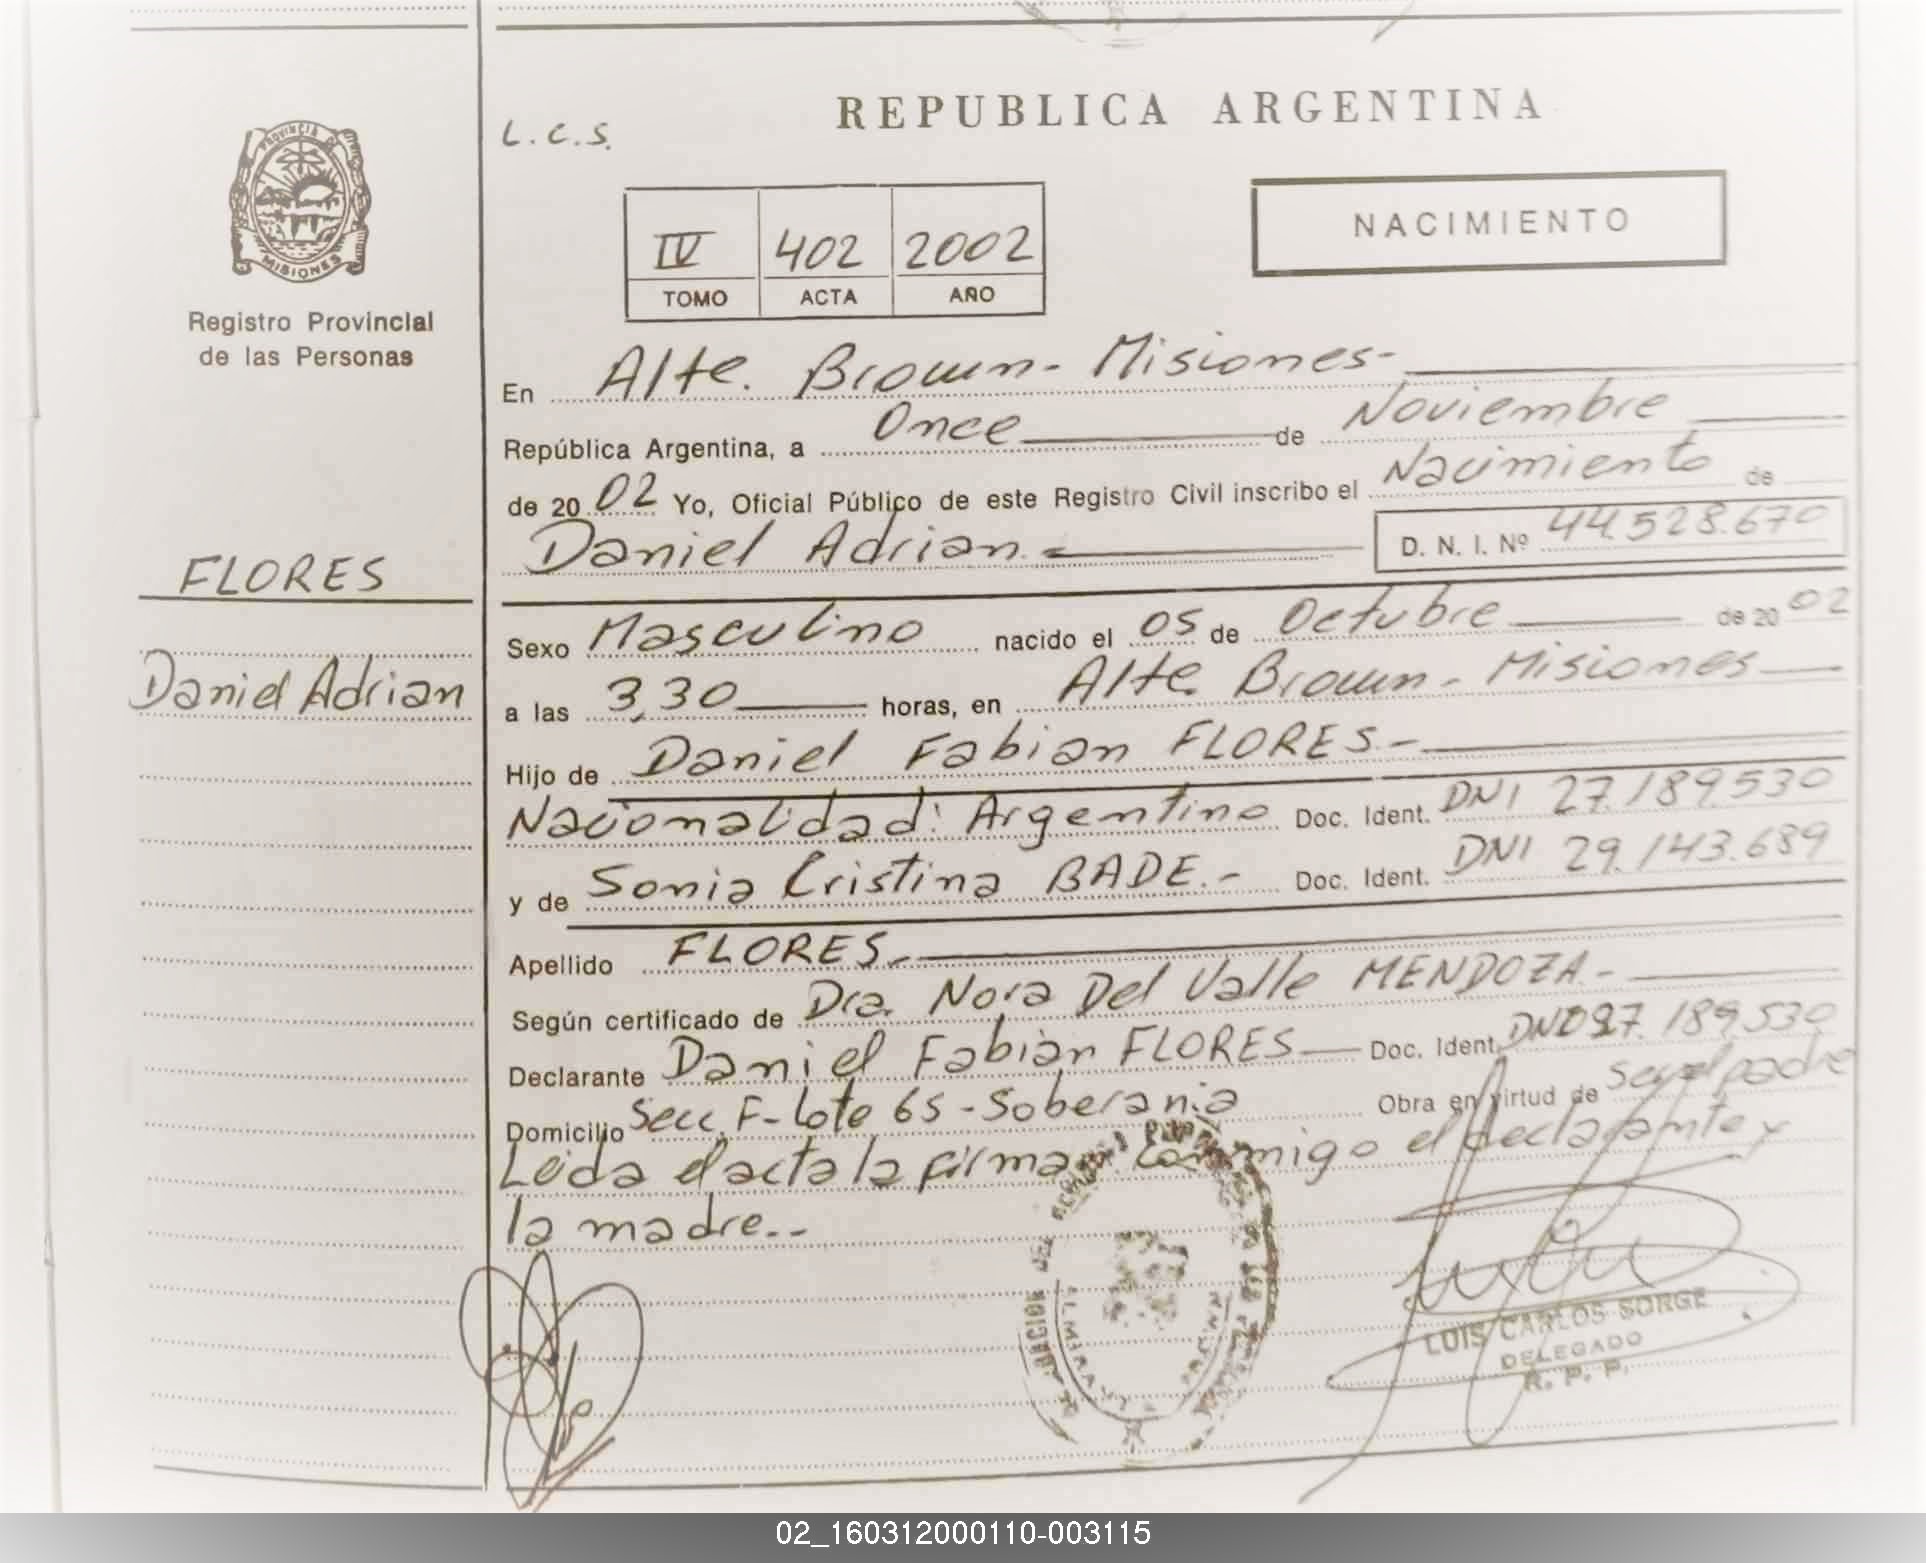 PROVINCIA DE
MISIONES
Registro Provincial
de las Personas
FLORES
Daniel Adrian
L.C.S.
REPUBLICA ARGENTINA
IV 402 2002
TOMO ACTA AÑO
NACIMIENTO
En Alte. Brown - Misiones-
República Argentina, a Once de Noviembre
de 2002 Yo, Oficial Público de este Registro Civil inscribo el Nacimiento de
Daniel Adrian.- D. N. I. Nº 44.528.670
Sexo Masculino nacido el 05 de Octubre de 2002
a las 3,30 horas, en Alte. Brown - Misiones
Hijo de Daniel Fabian FLORES.-
Nacionalidad: Argentino Doc. Ident. DNI 27.189.530
y de Sonia Cristina BADE.- Doc. Ident. DNI 29.143.689
Apellido FLORES.-
Según certificado de Dra. Nora Del Valle MENDOZA.-
Declarante Daniel Fabian FLORES Doc. Ident. DNI 27.189.530
Domicilio Secc. F- Lote 65 - Soberania Obra en virtud de ser el padre
Leida el acta la firman conmigo el declarante y
la madre.--
LUIS CARLOS SORGE
DELEGADO
R. P. P.
02_160312000110-003115